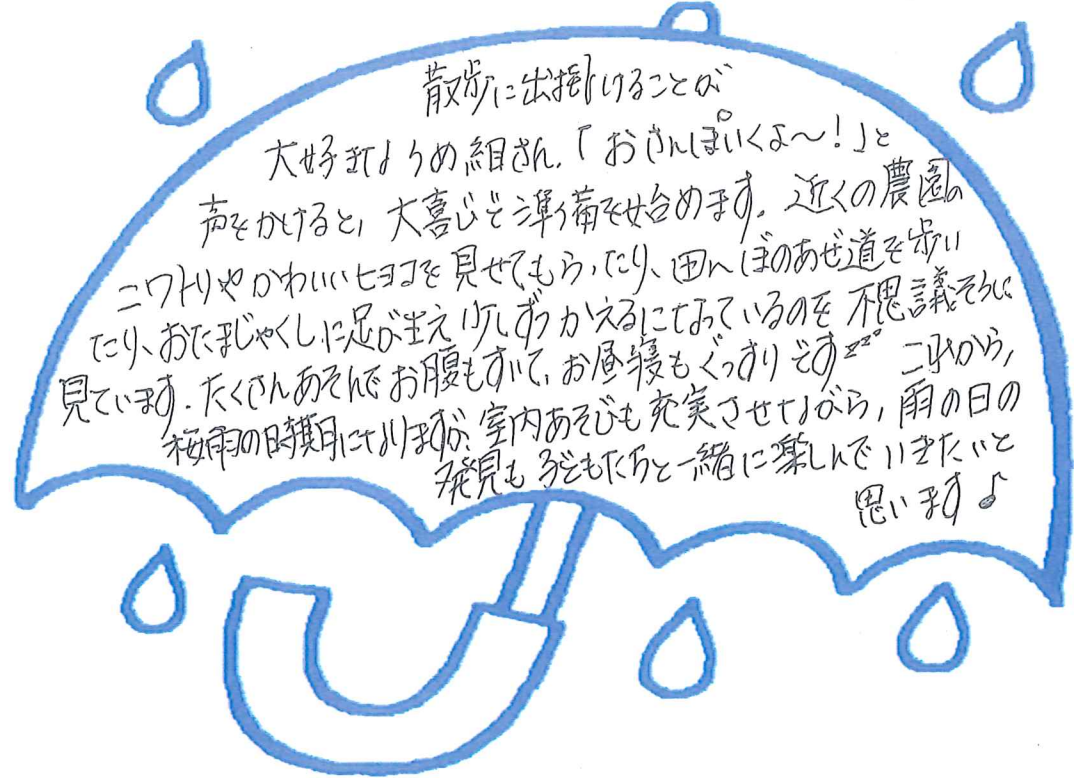 散歩に出掛けることが
大好きなうめ組さん。「おさんぽいくよ～!」と
声をかけると、大喜びで準備を始めます。近くの農園の
ニワトリやかわいいヒヨコを見せてもらったり、田んぼのあぜ道を歩い
たり、おたまじゃくしに足が生え少しずつかえるになっているのを不思議そうに
見ています。たくさんあそんでお腹もすいて、お昼寝もぐっすりですzzz これから、
梅雨の時期になりますが、室内あそびも充実させながら、雨の日の
発見も子どもたちと一緒に楽しんでいきたいと
思います♪